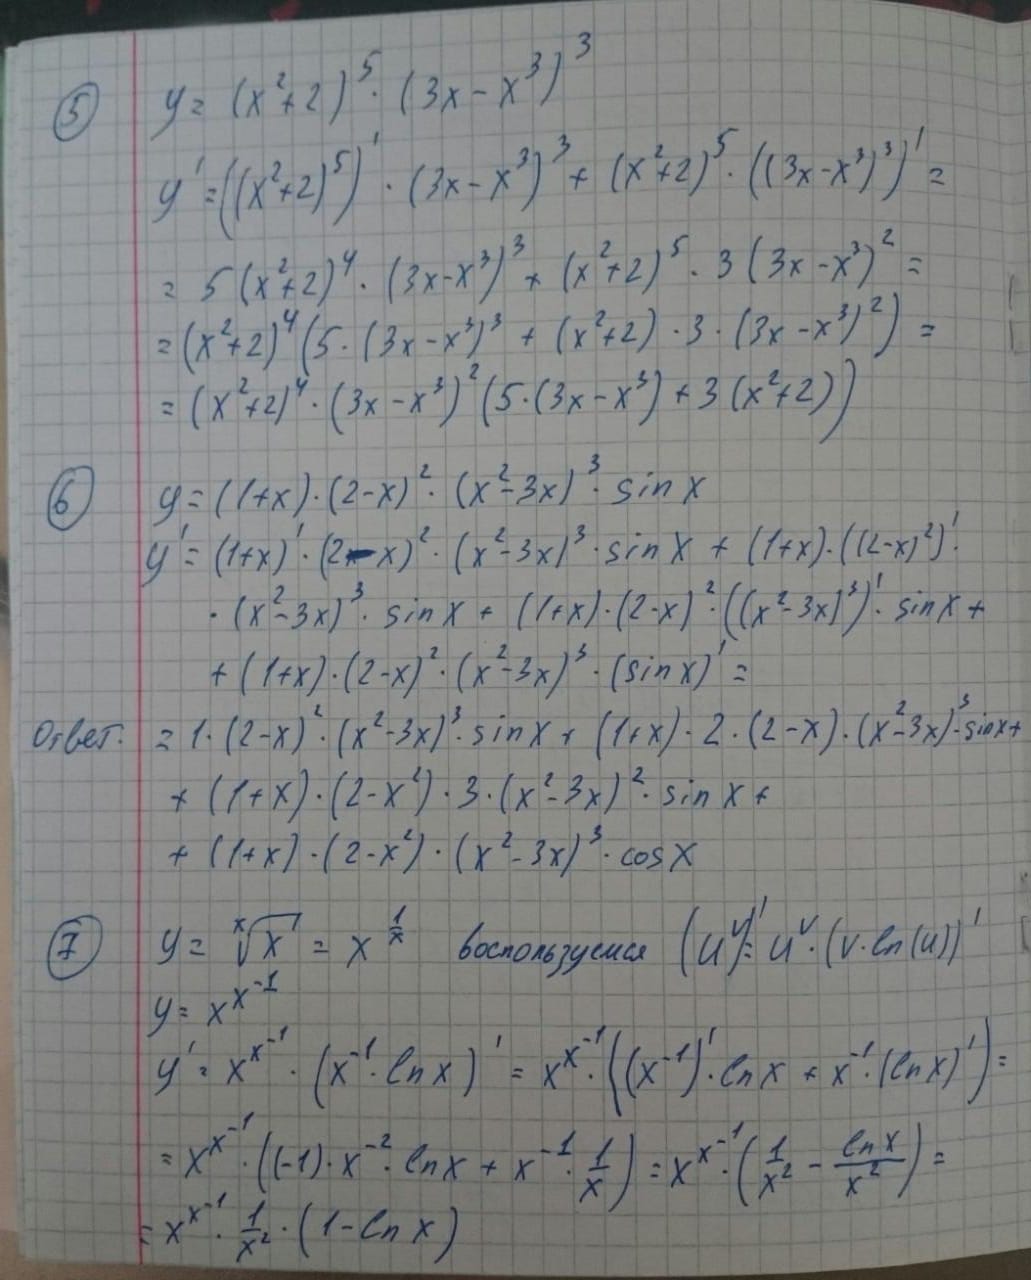 5 y = (x²+2)⁵ · (3x – x³)³
y' = ((x²+2)⁵)' · (3x – x³)³ + (x²+2)⁵ · ((3x–x³)³)' =
= 5(x²+2)⁴ · (3x–x³)³ + (x²+2)⁵ · 3(3x–x³)² =
= (x²+2)⁴(5·(3x–x³)³ + (x²+2)·3·(3x–x³)²) =
= (x²+2)⁴·(3x–x³)²(5·(3x–x³)+3(x²+2))
6 y = (1+x)·(2–x)²·(x²–3x)³·sin x
y' = (1+x)'·(2–x)²·(x²–3x)³·sin x + (1+x)·((2–x)²)'·
·(x²–3x)³·sin x + (1+x)·(2–x)²·((x²–3x)³)'·sin x +
+ (1+x)·(2–x)²·(x²–3x)³·(sin x)' =
Ответ. = 1·(2–x)²·(x²–3x)³·sin x + (1+x)·2·(2–x)·(x²–3x)³·sin x +
+ (1+x)·(2–x²)·3·(x²–3x)²·sin x +
+ (1+x)·(2–x²)·(x²–3x)³·cos x
7 y = ˣ√x = x^(1/x) воспользуемся (u^v)' = u^v·(v·ln(u))'
y = x^(x⁻¹)
y' = x^(x⁻¹)·(x⁻¹·ln x)' = x^(x⁻¹)·((x⁻¹)'·ln x + x⁻¹·(ln x)') =
= x^(x⁻¹)·((-1)·x⁻²·ln x + x⁻¹·1/x) = x^(x⁻¹)·(1/x² – ln x/x²) =
= x^(x⁻¹)·1/x²·(1–ln x)